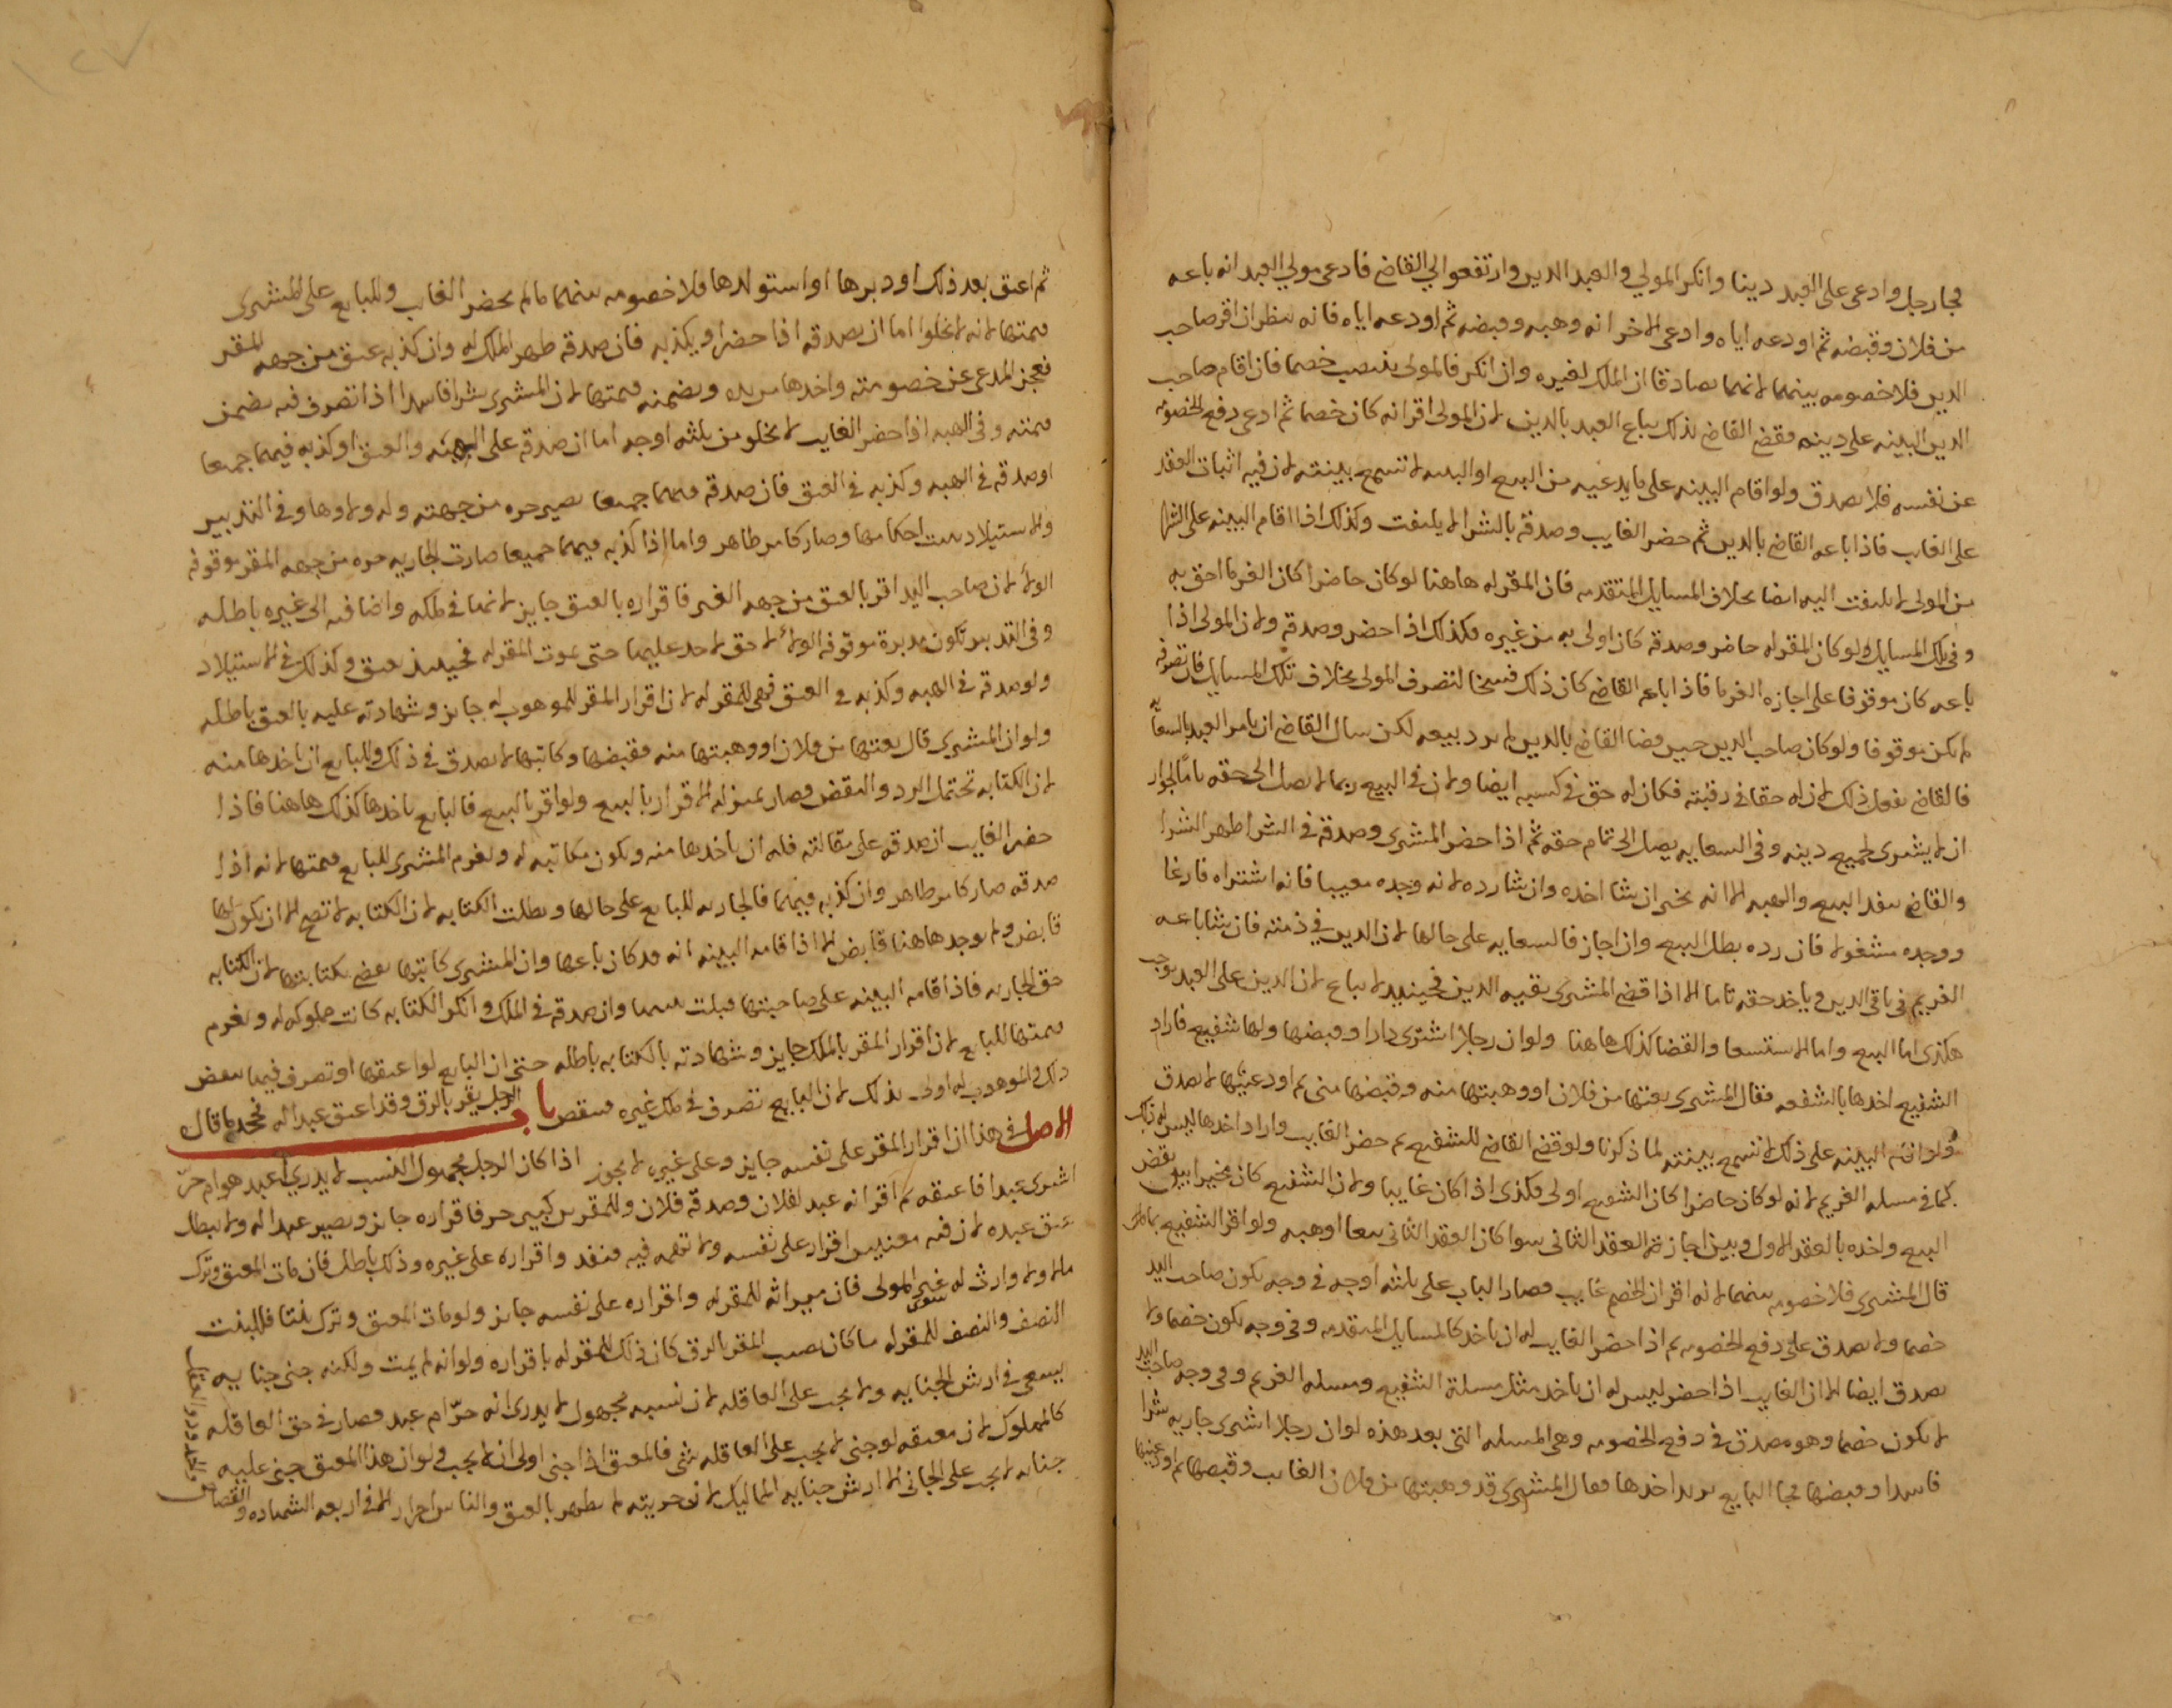 فجا رجل وادعى على العبد دينا وانكر المولي والعبد الدين وارتفعوا الي القاضي فادعى مولي العبد انه باعه
من فلان وقبضه ثم اودعه اياه وادعى الاخر انه وهبه وقبضه ثم اودعه اياه فانه ينظر ان اقر صاحب
الدين فلا خصومه بينهما لانهما تصادقا ان الملك لغيره وان انكر فالمولى ينتصب خصما فان اقام صاحب
الدين البينه على دينه فقضى القاضي بذلك يباع العبد بالدين لان المولى اقر انه كان خصما ثم ادعى دفع الخصومه
عن نفسه فلا يصدق ولو اقام البينه على ما يدعيه من البيع او الهبه لا تسمع بينته لان فيه اثبات العقد
على الغايب فاذا باعه القاضي بالدين ثم حضر الغايب وصدقه بالشرا لا يلتفت وكذلك اذا اقام البينه على الشرا
من المولى لا يلتفت اليه ايضا بخلاف المسايل المتقدمه فان المقر له هاهنا لو كان حاضرا كان الغرما احق به
وفي تلك المسايل لو كان المقر له حاضر وصدقه كان اولى به من غيره فكذلك اذا حضر وصدقه ولان المولى اذا
باعه كان موقوفا على اجازه الغرما فاذا باعه القاضي كان ذلك فسخا لتصرف المولى بخلاف تلك المسايل فان تصرفه
لم يكن موقوفا ولو كان صاحب الدين حين قضا القاضي بالدين لم يرد بيعه لكن سال القاضي ان يامر العبد بالسعايه
فالقاضي يفعل ذلك لان له حقا في رقبته فكان له حق في كسبه ايضا ولان في البيع ربما لا يصل الى حقه تاما لجواز
ان لا يشترى لجميع دينه وفي السعايه يصل الى تمام حقه ثم اذا حضر المشتري وصدقه في الشرا ظهر الشرا
والقاضي ينفذ البيع والهبه الا انه يخير ان شا اخذه وان شا رده لانه وجده معيبا فانه اشتراه فارغا
ووجده مشغولا فان رده بطل البيع وان اجاز فالسعايه على حالها لان الدين في ذمته فان شا باعه
الغريم في باقي الدين وياخذ حقه تاما الا اذا قضى المشتري بقيه الدين فحينيذ لا يباع لان الدين على العبد يوجب
هكذى اما البيع واما الاستسعا والقضا كذلك هاهنا ولو ان رجلا اشترى دارا وقبضها ولها شفيع فاراد
الشفيع اخذها بالشفعه فقال المشتري بعتها من فلان او وهبتها منه وقبضها مني ثم اودعنيها لا يصدق
ولو اقام البينه على ذلك لا تسمع بينته لما ذكرنا ولو قضى القاضي للشفيع ثم حضر الغايب واراد اخذها ليس له ذلك
كما في مسله الغريم لانه لو كان حاضرا كان الشفيع اولى فكذى اذا كان غايبا ولان الشفيع كان مخيرا بين نقض
البيع واخذه بالعقد الاول وبين اجازة العقد الثاني سوا كان العقد الثاني بيعا او هبه ولو اقر الشفيع بما
قال المشتري فلا خصومه بينهما لانه اقر ان الخصم غايب فصار الباب على ثلثه اوجه في وجه يكون صاحب اليد
خصما ولا يصدق على دفع الخصومه ثم اذا حضر الغايب له ان ياخذ كالمسايل المتقدمه وفي وجه يكون خصما ولا
يصدق ايضا الا ان الغايب اذا حضر ليس له ان ياخذ مثل مسلة الشفيع ومسله الغريم وفي وجه صاحب اليد
لا يكون خصما وهو مصدق في دفع الخصومه وهي المسله التي بعد هذه لو ان رجلا اشترى جاريه شرا
فاسدا وقبضها فجا البايع يريد اخذها فقال المشتري قد وهبتها من فلان الغايب وقبضها ثم اودعنيها
ثم اعتق بعد ذلك او دبرها او استولدها فلا خصومه بينهما ما لم يحضر الغايب وللبايع على المشتري
قيمتها لانه لا يخلوا اما ان يصدقه اذا حضر او يكذبه فان صدقه ظهر الملك له وان كذبه عتق من جهه المقر
فعجز المدعى عن خصومته واخذها من يده ويضمنه قيمتها لان المشتري شرا فاسدا اذا تصرف فيه يضمن
قيمته وفي الهبه اذا حضر الغايب لا يخلو من ثلثه اوجه اما ان صدقه على الهبه والعتق او كذبه فيهما جميعا
او صدقه في الهبه وكذبه في العتق فان صدقه فيهما جميعا يصير حره من جهته وله ولاوها وفي التدبير
والاستيلاد يثبت احكامها وصار كامر ظاهر واما اذا كذبه فيهما جميعا صارت الجاريه حره من جهه المقر موقوفه
الولا لان صاحب اليد اقر بالعتق من جهه الغير فاقراره بالعتق جايز لانها في ملكه واضافته الى غيره باطله
وفي التدبير تكون مدبرة موقوفه الولا لا حق لاحد عليها حتى يموت المقر له فحينيذ يعتق وكذلك في الاستيلاد
ولو صدقه في الهبه وكذبه في العتق فهي للمقر له لان اقرار المقر للموهوب له جايز وشهادته عليه بالعتق باطله
ولو ان المشتري قال بعتها من فلان او وهبتها منه فقبضها وكاتبها لا يصدق في ذلك وللبايع ان ياخذها منه
لان الكتابه تحتمل الرد والنقض فصار بمنزله الاقرار بالبيع ولو اقر بالبيع فالبايع ياخذها كذلك هاهنا فاذا
حضر الغايب ان صدقه على مقالته فله ان ياخذها منه ويكون مكاتبه له ويغرم المشتري للبايع قيمتها لانه اذا
صدقه صار كامر ظاهر وان كذبه فيهما فالجاريه للبايع على حالها وبطلت الكتابه لان الكتابه لا تصح الا ان يكون لها
قابض ولم يوجد هاهنا قابض الا اذا قامه البينه انه قد كان باعها وان المشتري كاتبها يقضى بكتابتها لان الكتابه
حق الجاريه فاذا اقامه البينه على صاحبتها قبلت بينتها وان صدقه في الملك وانكر الكتابه كانت مملوكه له ويغرم
قيمتها للبايع لان اقرار المقر بالملك جايز وشهادته بالكتابه باطله حتى ان البايع لو اعتقها او تصرف فيها ينقض
ذلك والموهوب له اولى بذلك لان البايع تصرف في ملك غيره فينقض باب الرجل يقر بالرق وقد اعتق عبدا له فجحد ما قال
الاصل في هذا ان اقرار المقر على نفسه جايز وعلى غيره لا يجوز اذا كان الرجل مجهول النسب لا يدري اعبد هو ام حر
اشترى عبدا فاعتقه ثم اقر انه عبد لفلان وصدقه فلان وللمقر بن كبير حر فاقراره جايز ويصير عبدا له ولا يبطل
عتق عبده لان فيه معنيين اقرار على نفسه ولا تهمه فيه فنفذ واقراره على غيره وذلك باطل فان مات المعتق وترك
مالا ولا وارث له غير المولى فان ميراثه للمقر له واقراره على نفسه جايز ولو مات المعتق وترك بنتا فللبنت
النصف والنصف للمقر له ما كان نصيب المقر بالرق كان ذلك للمقر له باقراره ولو انه لم يمت ولكنه جنى جنايه
يسعى في ارش الجنايه ولا يجب على العاقله لان نسبه مجهول لا يدرى انه حر ام عبد فصار في حق العاقله
كالمملوك لان معتقه لو جنى لا يجب على العاقله شي فالمعتق اذا جنى اولى ان لا يجب ولو ان هذا المعتق جني عليه
جنايه لا يجب على الجاني الا ارش جنايه المماليك لان حريته لم يظهر بالعتق والناس احرار الا في اربعه الشهاده والقصاص
والحدود والعقل